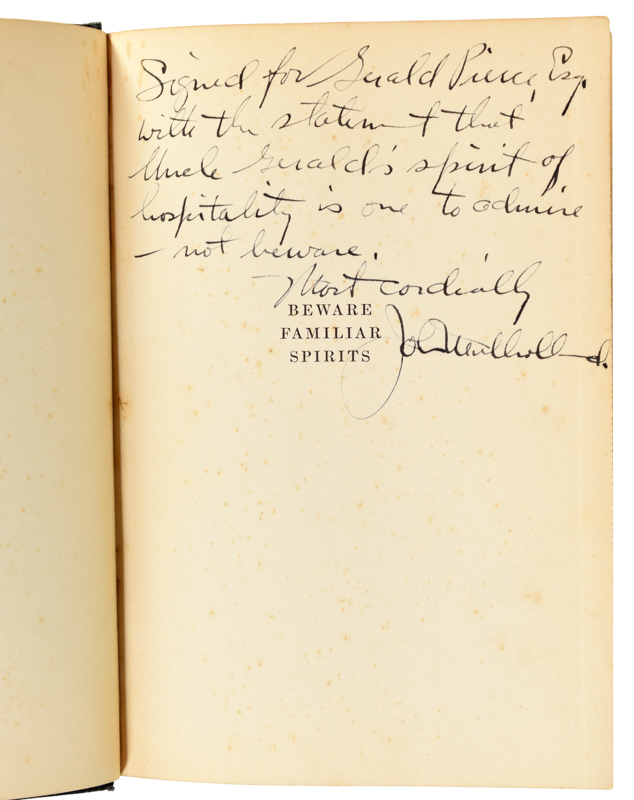 Signed for Gerald Pierce, Esq.
with the statement that
Uncle Gerald's spirit of
hospitality is one to admire
— not beware.
Most cordially
BEWARE
FAMILIAR
SPIRITS
John Mulholland.